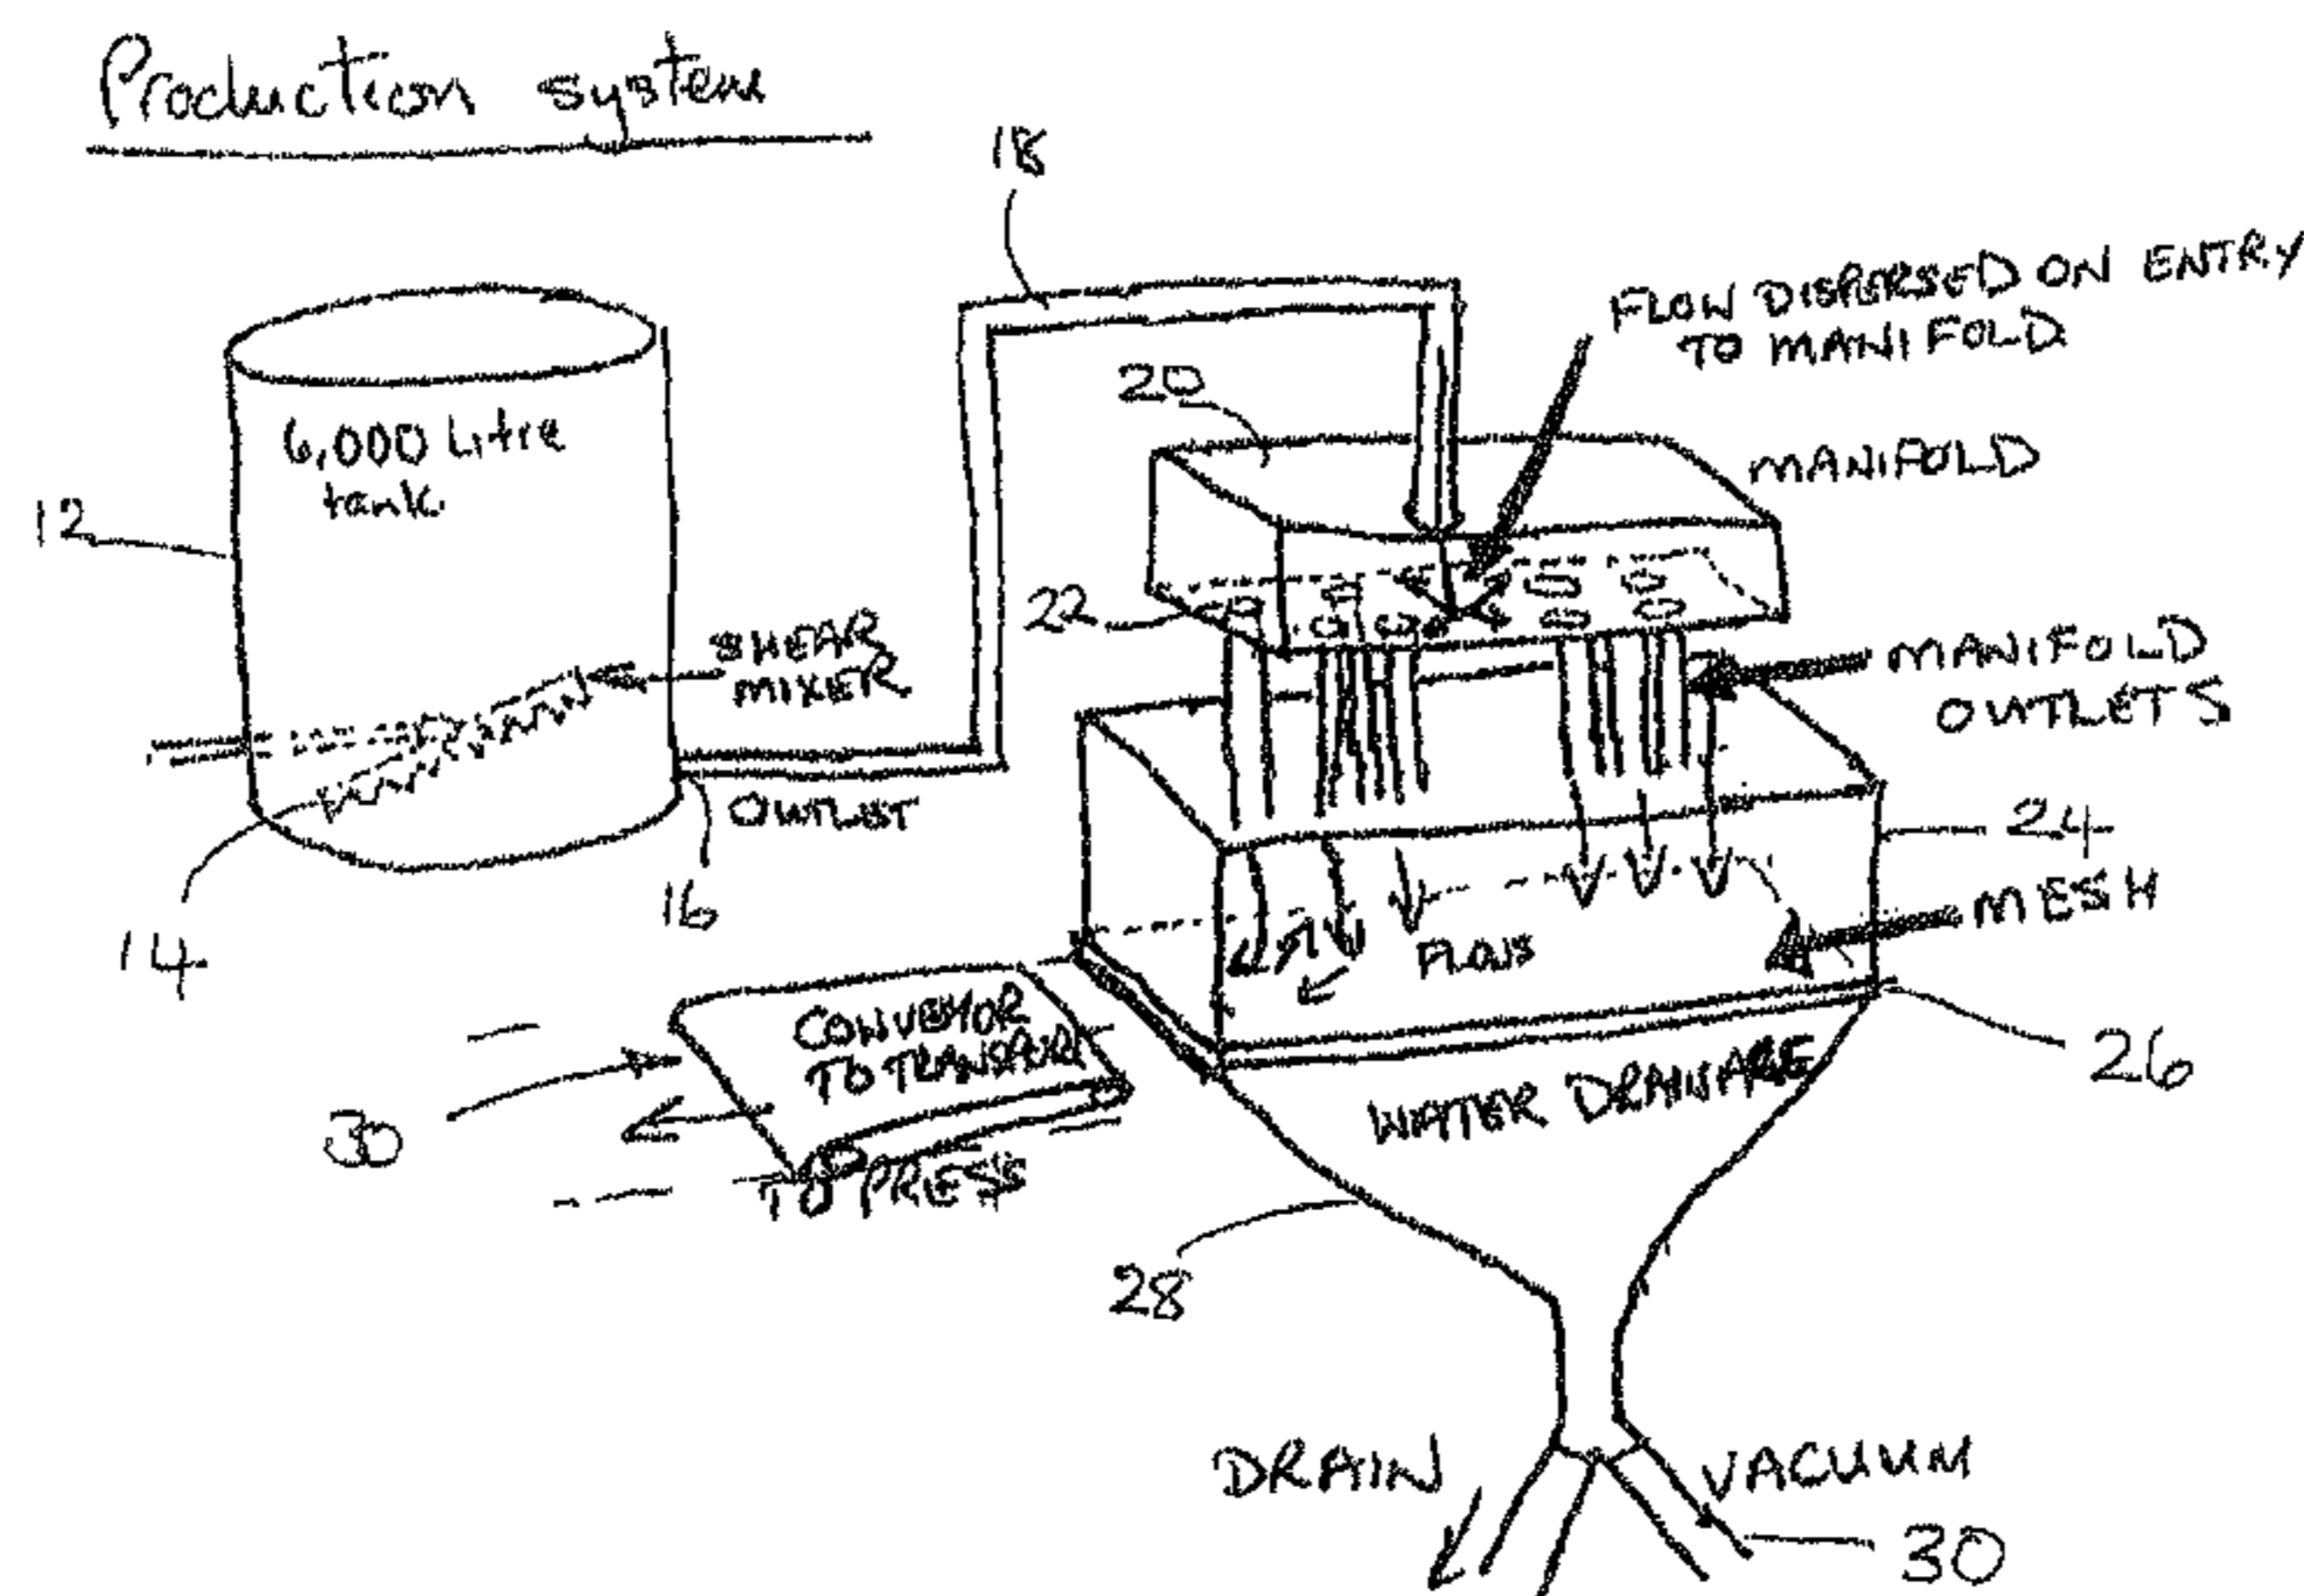 Production system
18
FLOW DISPERSED ON ENTRY
TO MANIFOLD
20
MANIFOLD
6,000 Litre
tank
12
22
SHEAR
MIXER
MANIFOLD
OUTLETS
OUTLET
24
16
MESH
14
FLOW
CONVEYOR
TO TRANSFER
26
30
WATER DRAINAGE
TO PRESS
28
DRAIN
VACUUM
30